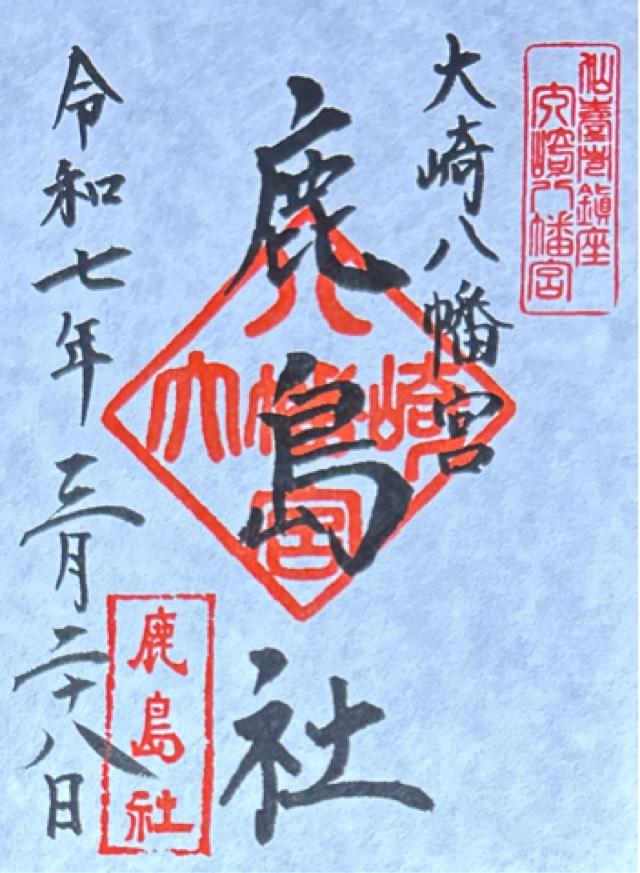 仙臺市鎮座
大崎八幡宮
大崎八幡宮
鹿島社
大崎八幡宮
鹿島社
令和七年三月二十八日